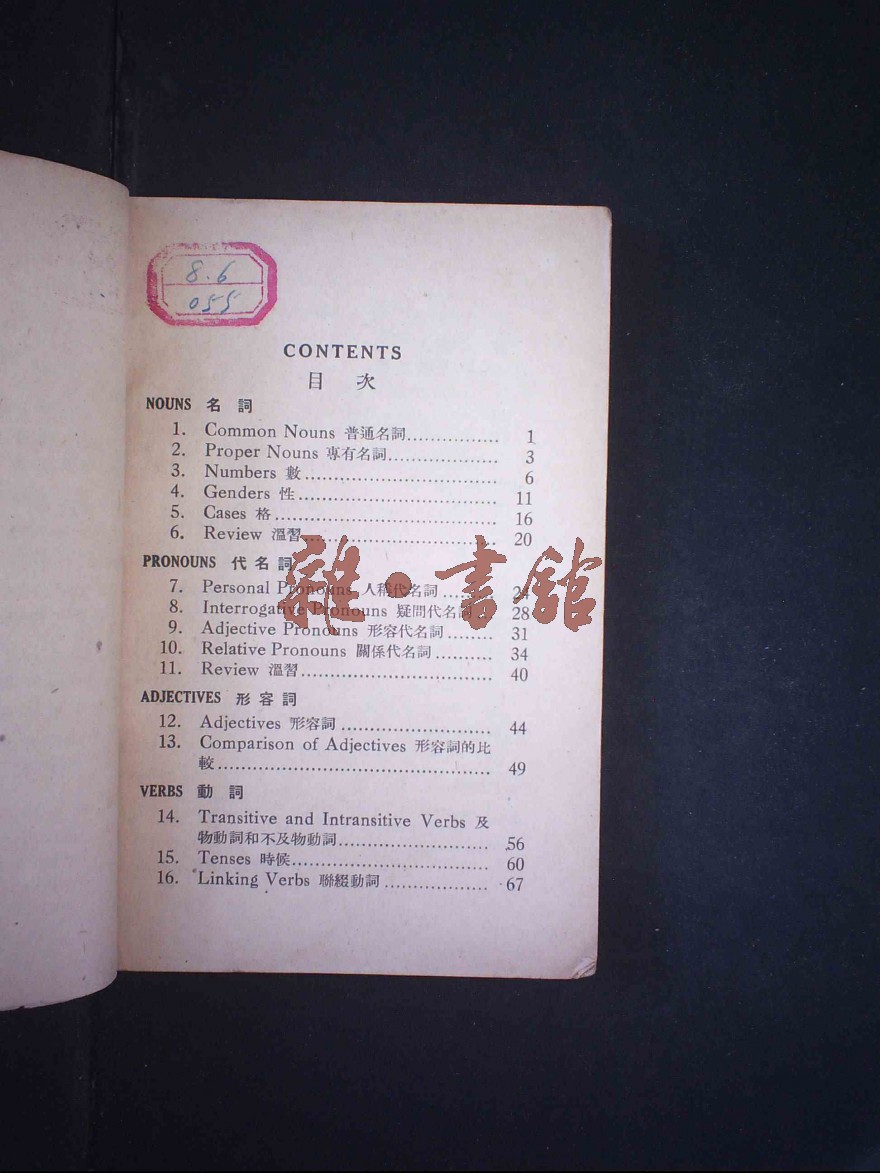 8.6
055
CONTENTS
目 次
NOUNS 名 詞
1. Common Nouns 普通名詞................ 1
2. Proper Nouns 專有名詞................... 3
3. Numbers 數.................................. 6
4. Genders 性................................... 11
5. Cases 格....................................... 16
6. Review 溫習.................................. 20
PRONOUNS 代 名 詞
7. Personal Pronouns 人稱代名詞......... 24
8. Interrogative Pronouns 疑問代名詞... 28
9. Adjective Pronouns 形容代名詞........ 31
10. Relative Pronouns 關係代名詞.......... 34
11. Review 溫習.................................. 40
雜·書館
ADJECTIVES 形 容 詞
12. Adjectives 形容詞.......................... 44
13. Comparison of Adjectives 形容詞的比
較................................................ 49
VERBS 動 詞
14. Transitive and Intransitive Verbs 及
物動詞和不及物動詞.......................... 56
15. Tenses 時候................................... 60
16. Linking Verbs 聯綴動詞.................. 67